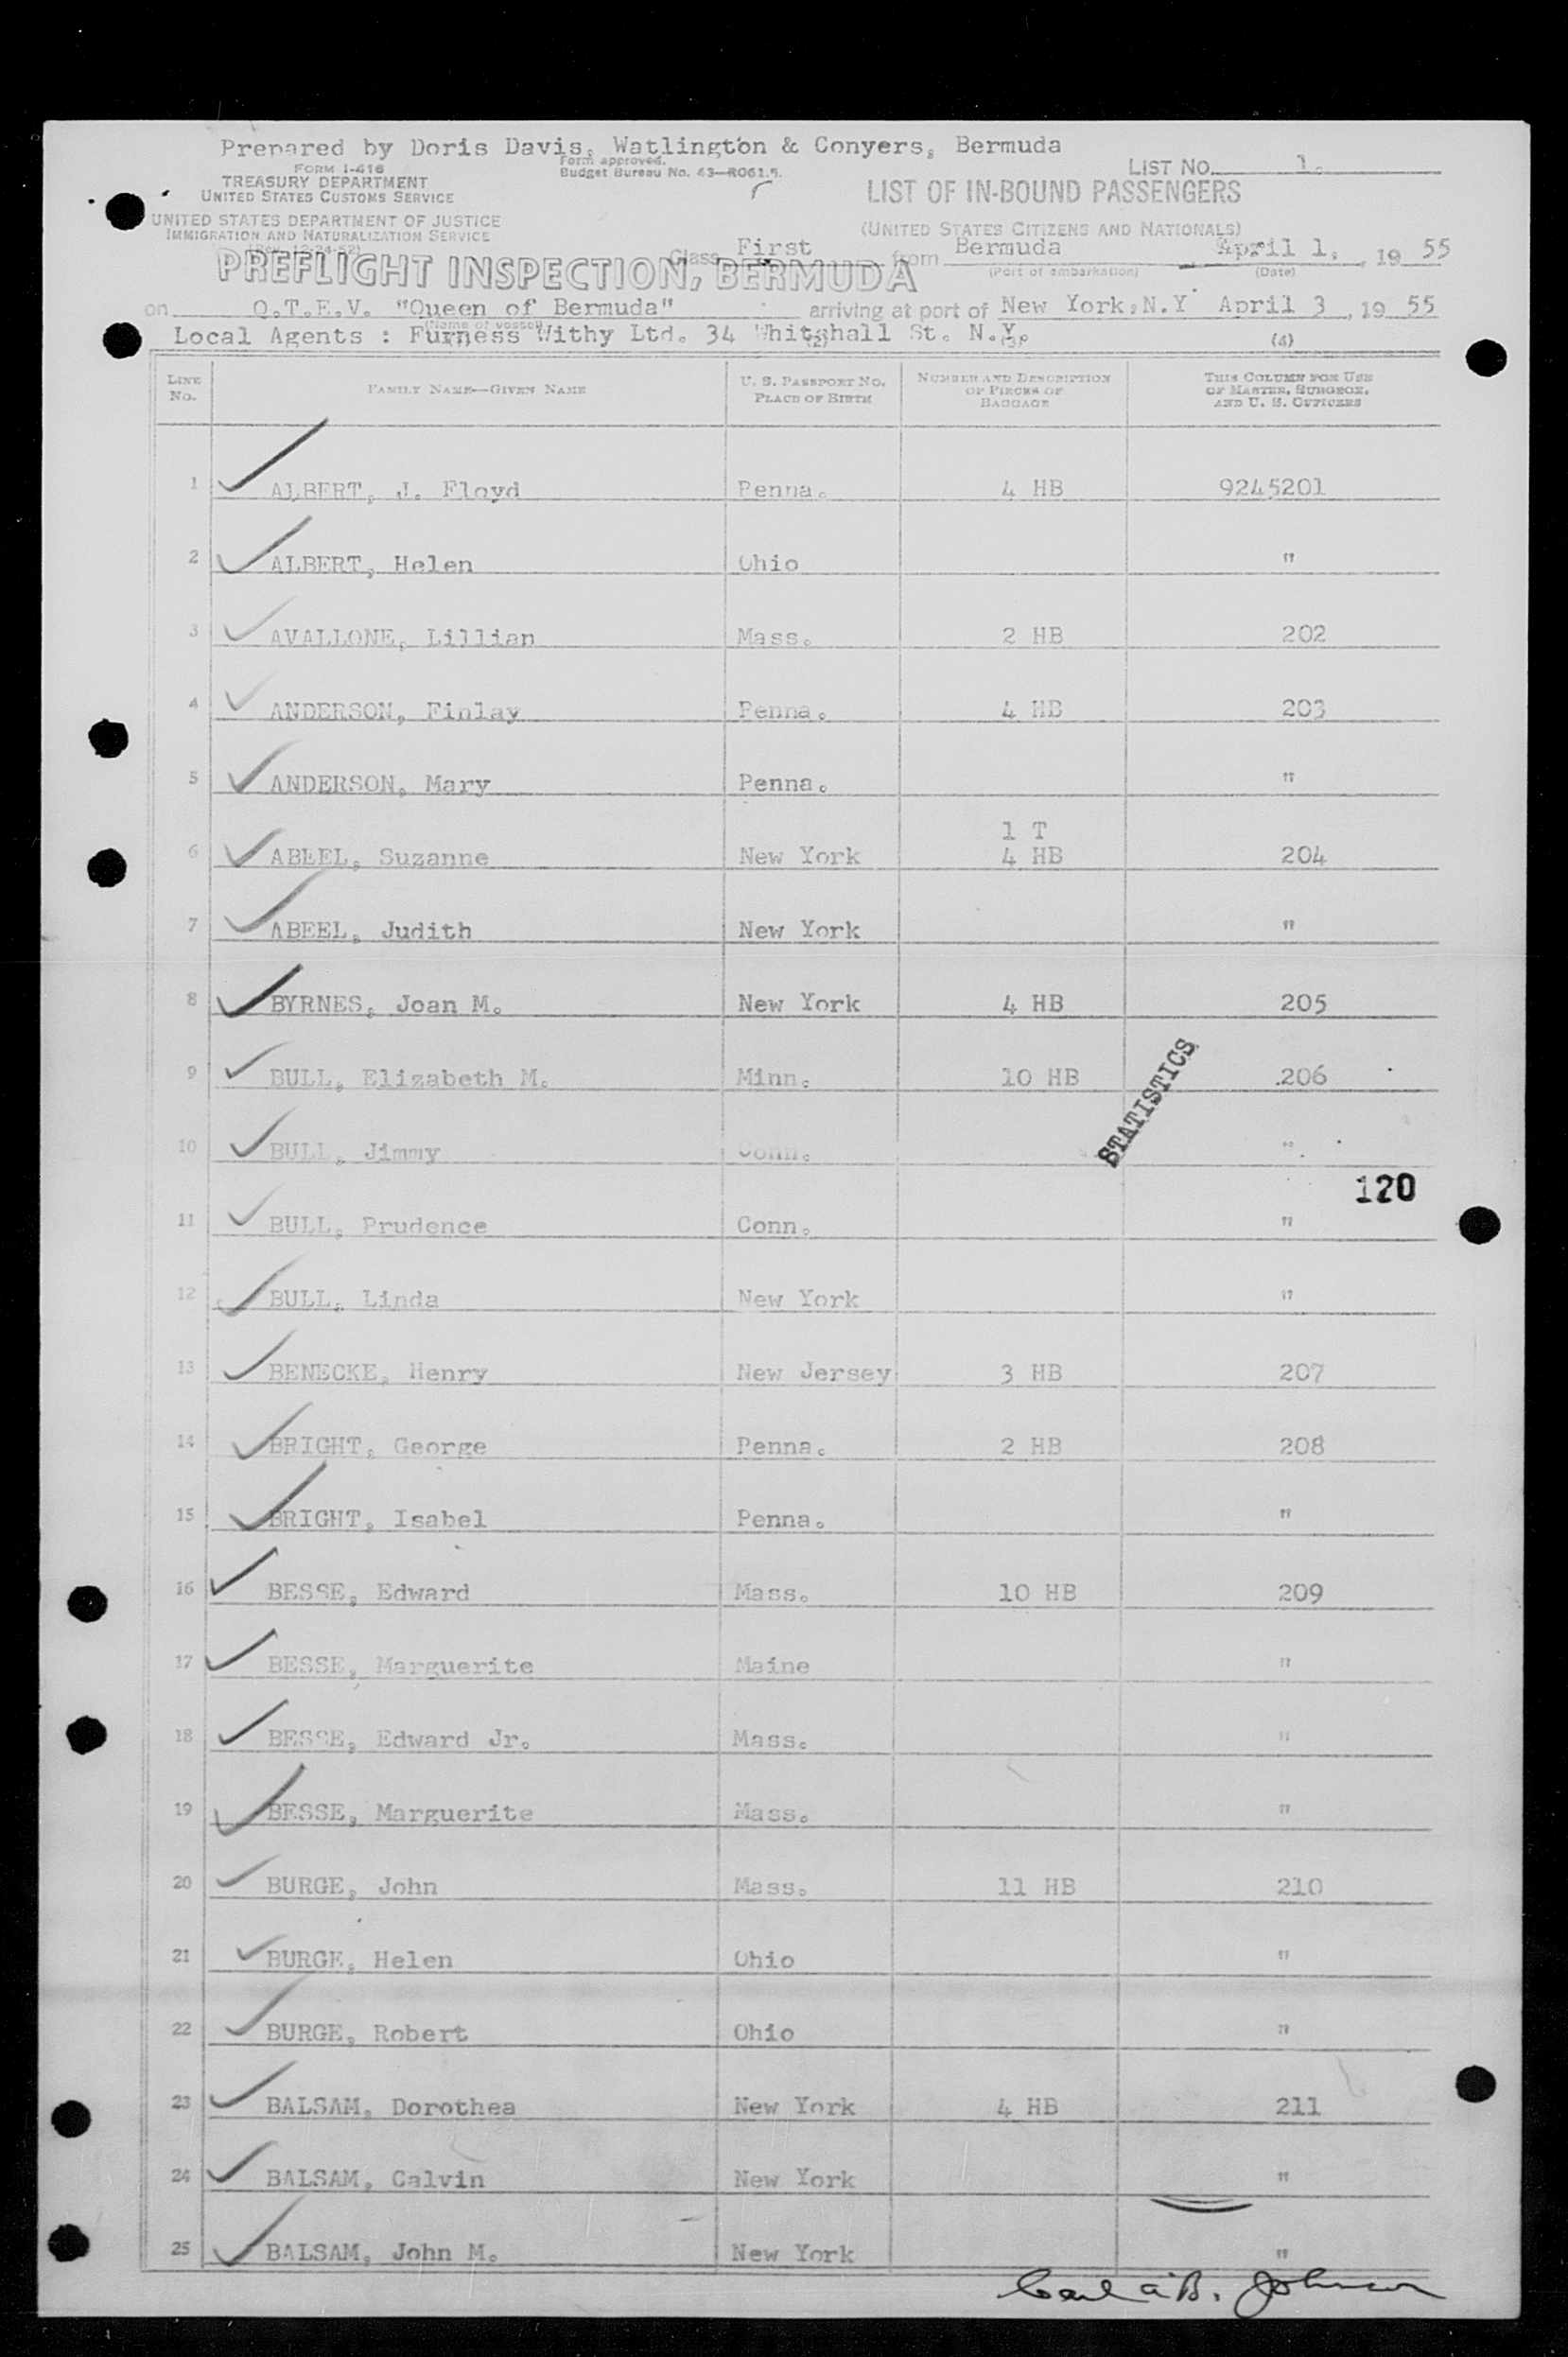 Prepared by Doris Davis, Watlington & Conyers, Bermuda
FORM I-416
TREASURY DEPARTMENT
UNITED STATES CUSTOMS SERVICE
UNITED STATES DEPARTMENT OF JUSTICE
IMMIGRATION AND NATURALIZATION SERVICE
(Rev. 12-24-52)
Form approved.
Budget Bureau No. 43—RO61.5.
LIST NO. 1.
LIST OF IN-BOUND PASSENGERS
(UNITED STATES CITIZENS AND NATIONALS)
PREFLIGHT INSPECTION, BERMUDA
Class First from Bermuda April 1, , 19 55
(Port of embarkation) (Date)
on Q.T.E.V. "Queen of Bermuda" arriving at port of New York, N.Y April 3 , 19 55
(Name of vessel)
Local Agents : Furness Withy Ltd. 34 Whitehall St. N.Y.
(2) (3) (4)
LINE No. FAMILY NAME—GIVEN NAME U. S. PASSPORT NO. PLACE OF BIRTH NUMBER AND DESCRIPTION OF PIECES OF BAGGAGE THIS COLUMN FOR USE OF MASTER, SURGEON, AND U. S. OFFICERS
1 ALBERT, J. Floyd Penna. 4 HB 9245201
2 ALBERT, Helen Ohio "
3 AVALLONE, Lillian Mass. 2 HB 202
4 ANDERSON, Finlay Penna. 4 HB 203
5 ANDERSON, Mary Penna. "
1 T
6 ABEEL, Suzanne New York 4 HB 204
7 ABEEL, Judith New York "
8 BYRNES, Joan M. New York 4 HB 205
9 BULL, Elizabeth M. Minn. 10 HB 206
STATISTICS
10 BULL, Jimmy Conn. "
120
11 BULL, Prudence Conn. "
12 BULL, Linda New York "
13 BENECKE, Henry New Jersey 3 HB 207
14 BRIGHT, George Penna. 2 HB 208
15 BRIGHT, Isabel Penna. "
16 BESSE, Edward Mass. 10 HB 209
17 BESSE, Marguerite Maine "
18 BESSE, Edward Jr. Mass. "
19 BESSE, Marguerite Mass. "
20 BURGE, John Mass. 11 HB 210
21 BURGE, Helen Ohio "
22 BURGE, Robert Ohio "
23 BALSAM, Dorothea New York 4 HB 211
24 BALSAM, Calvin New York "
25 BALSAM, John M. New York "
Johnson